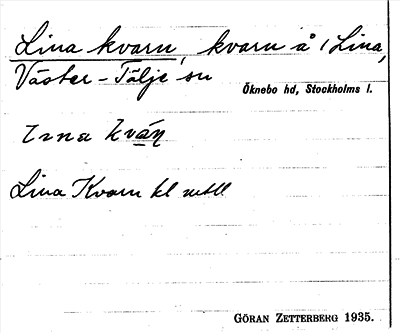 Lina kvarn, kvarn å 1 Lina,
Väster-Tälje sn
Öknebo hd, Stockholms l.
Lina kvän
Lina Kvarn kl mtll
GÖRAN ZETTERBERG 1935.